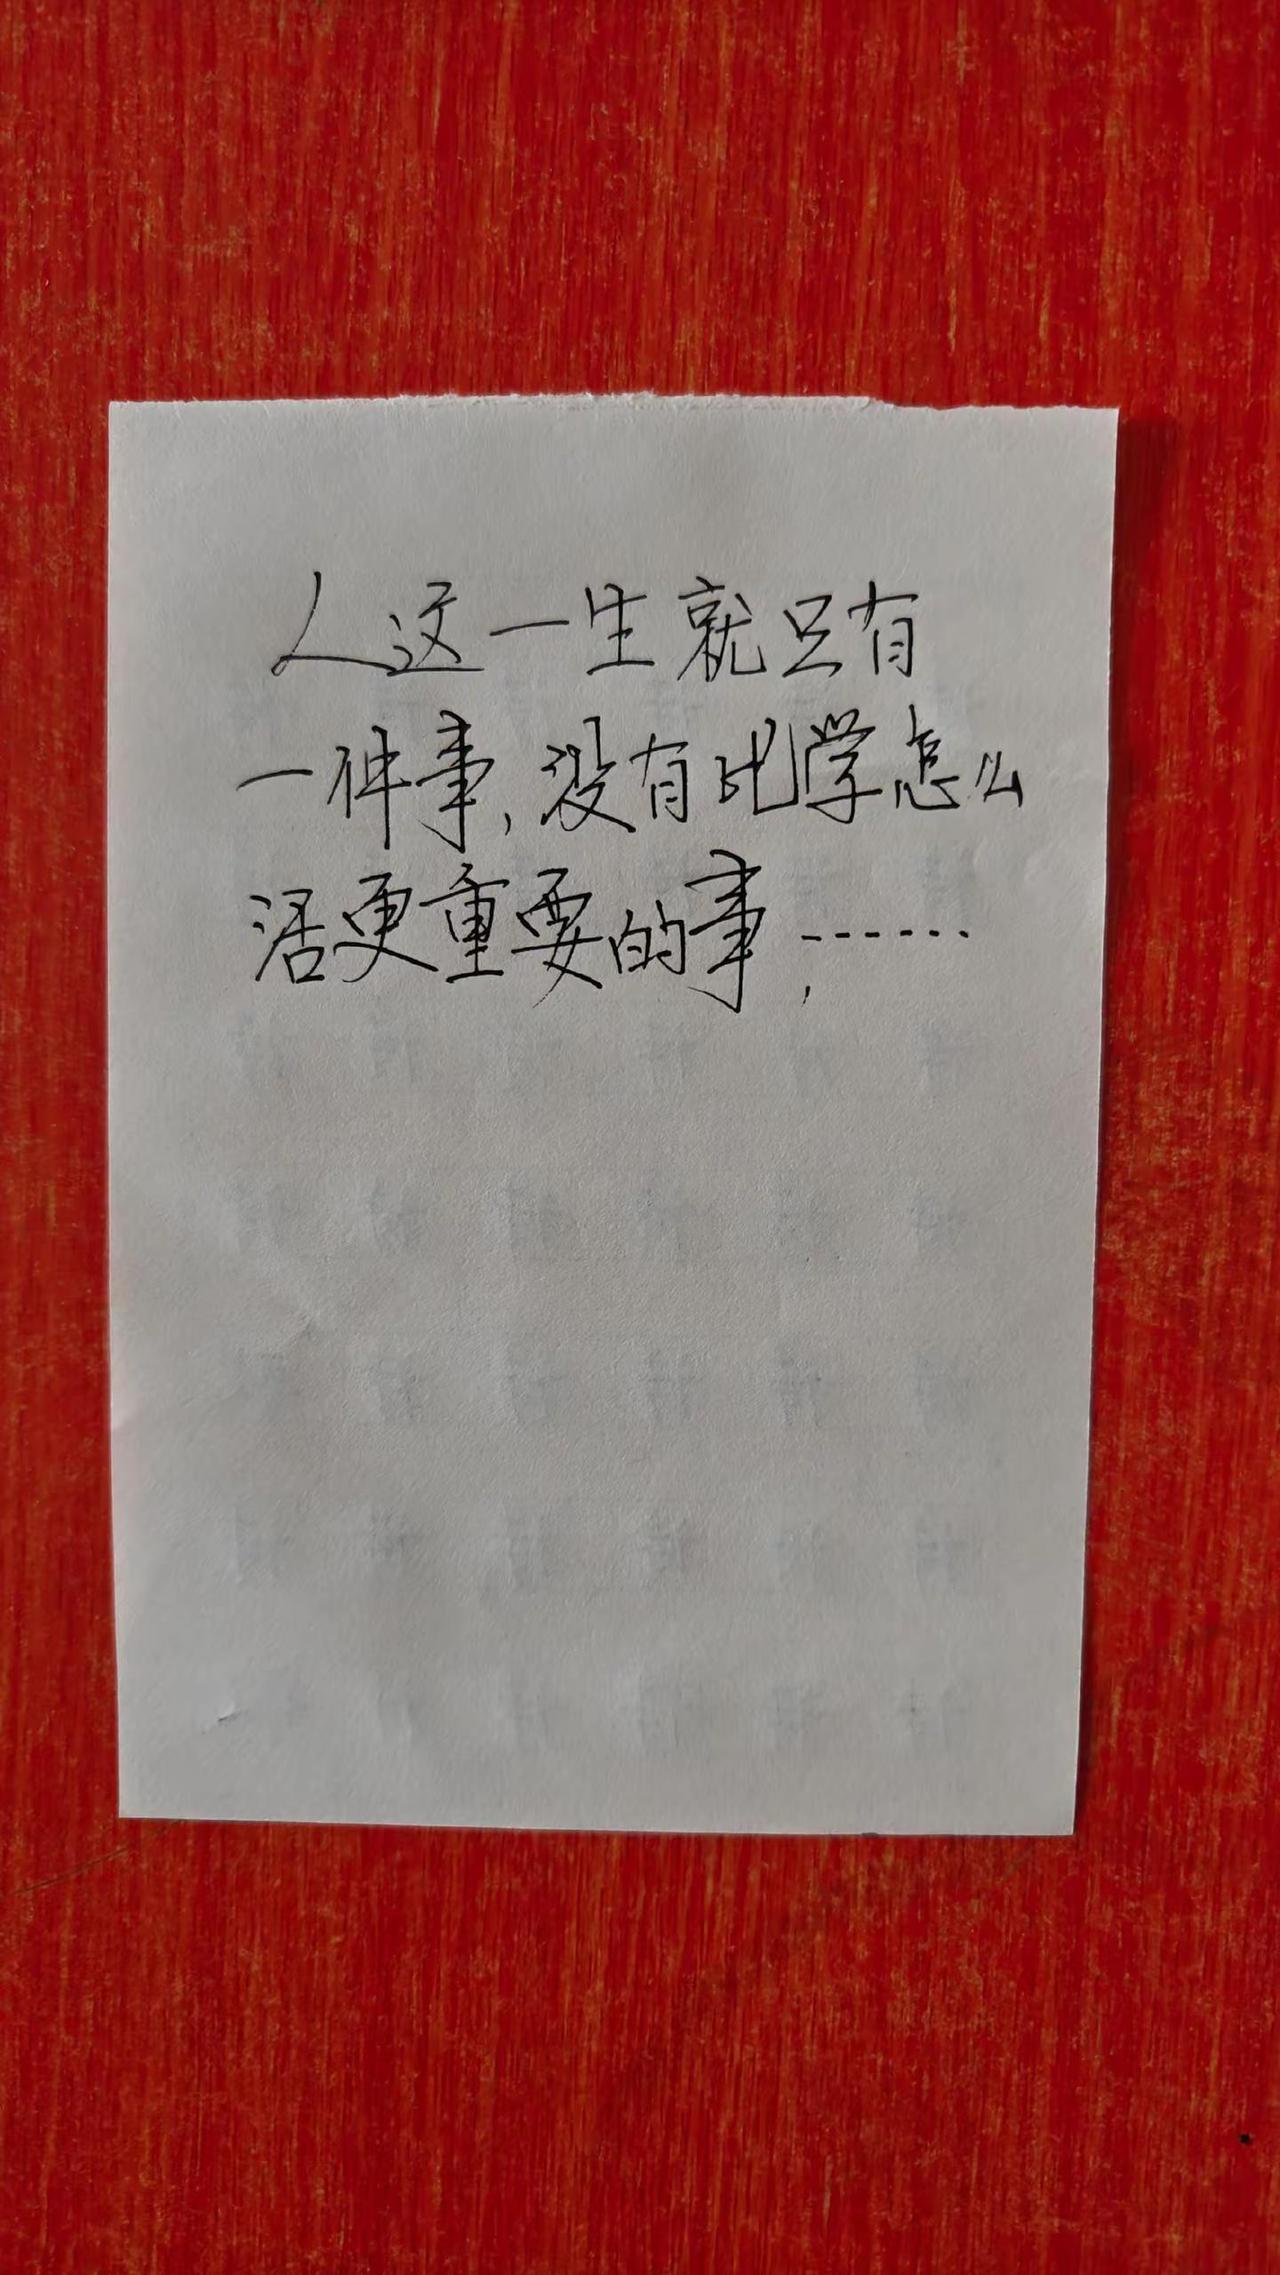 人这一生就只有
一件事,没有比学怎么
活更重要的事,······